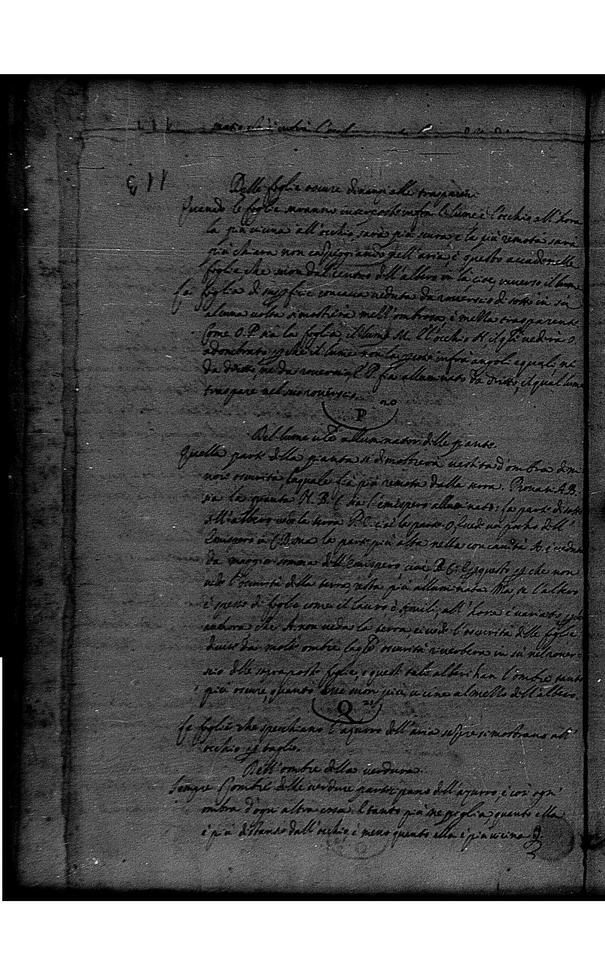 113
Delle foglie oscure dinanzi alle trasparenti.
Quando le foglie saranno interposte infra il lume e l'occhio all'hora
la più vicina all'occhio sarà più scura, e la più remota sarà
più chiara non campeggiando nell'aria e questo accade nelle
foglie che sono dal centro dell'albero in là cioè inverso il lume
La foglia di superficie concava veduta da rovescio di sotto in sù
alcuna volta si mostrerà mezz'ombrosa, e mezza trasparente
Come O.P. sia la foglia, il lume M. e l'occhio N il q.le vedrà O.
adombrato p.che il lume non la infra angoli equali, nè
da dritto, nè da rovescio, e P. fia alluminato da dritto, il qual lume
traspare nel suo rovescio.
P
Del lume alluminatori delle piante.
Quella parte della pianta si dimostrerà vestita d'ombra di mi
nore oscurità laquale fia più remota dalla terra. Provasi A.B.
sia la pianta N.B.C. sia l'emispero alluminato: la parte di sotto
dell'albero vede la terra B.C. cioè la parte O. e vede un poco dell'
emispero in C.D. ma la parte più alta nella concavità A. è veduta
da maggior somma dell'emispero cioè B.C. E p. questo p.che non
vede l'oscurità della terra, resta più alluminata. Ma se l'albero
è spesso di foglie come il lauro è simili, all'hora è variato
ancora che A. non veda la terra ei vede l'oscurità delle foglie
divise da molte ombre oscurità riverbera in sù nel rover-
scio delle sopraposte foglie, e questi tali alberi han l'ombre tanto
più oscure, quanto esse son più vicine al mezzo dell'albero.
Q
Le foglie che specchiano l'azzurro dell'aria sempre si mostrano all'
occhio p. taglio.
Dell'ombre della verdura.
Sempre l'ombre delle verdure participano dell'azurro, e così ogn'
ombra d'ogn'altra cosa e tanto più ne pigliа, quanto ella
è più distante dall'occhio e meno quanto ella è più vicina